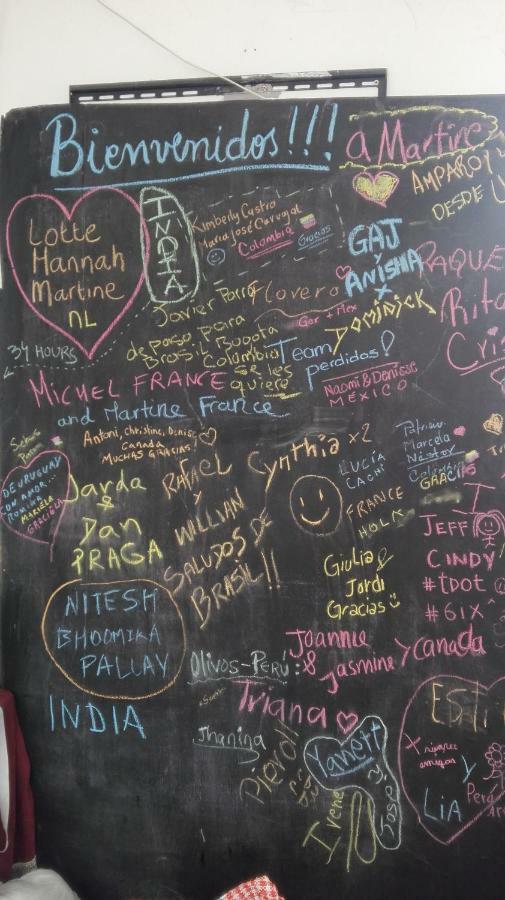 Bienvenidos!!!
a Martire
AMPARO Y
DESDE
Lotte
Hannah
Martine
NL
INDIA
Kimberly Castro
Maria José Carvajal
Colombia Gracias
GAJ
Y
ANISHA
Javier Parra
Flovero
Gor + Alex
DOMINICK
RAQUE
Rita
Cris
34 HOURS
de paso para
Brasil Bogota
Colombia
se les
quiere
Team
perdidos!
Naomi & Denisse
MEXICO
MICHEL FRANCE
and Martine France
Antoni, Christine, Denise
Canada
MUCHAS GRACIAS!
DE URUGUAY
CON AMOR...
ROMINA
MARIELA
GRACIELA
Jarda
&
Dan
PRAGA
RAFAEL
Y
WILLIAN
SALUDOS DE
BRASIL!!
Cynthia x2
LUCÍA
CACHI
FRANCE
HOLA
Patricia
Marcela
Néstor
Colombia
GRACIAS
I
JEFF
CINDY
#tDOT
#6IX
Giulia &
Jordi
Gracias
NITESH
BHOOMIKA
PALLAV
INDIA
Olivos-PERÚ:
Joannie
& Jasmine y Canada
Triana
Jhanina
Pierol
Yanett
Jose y
Irene
Est
amigos
y
LIA
Perú